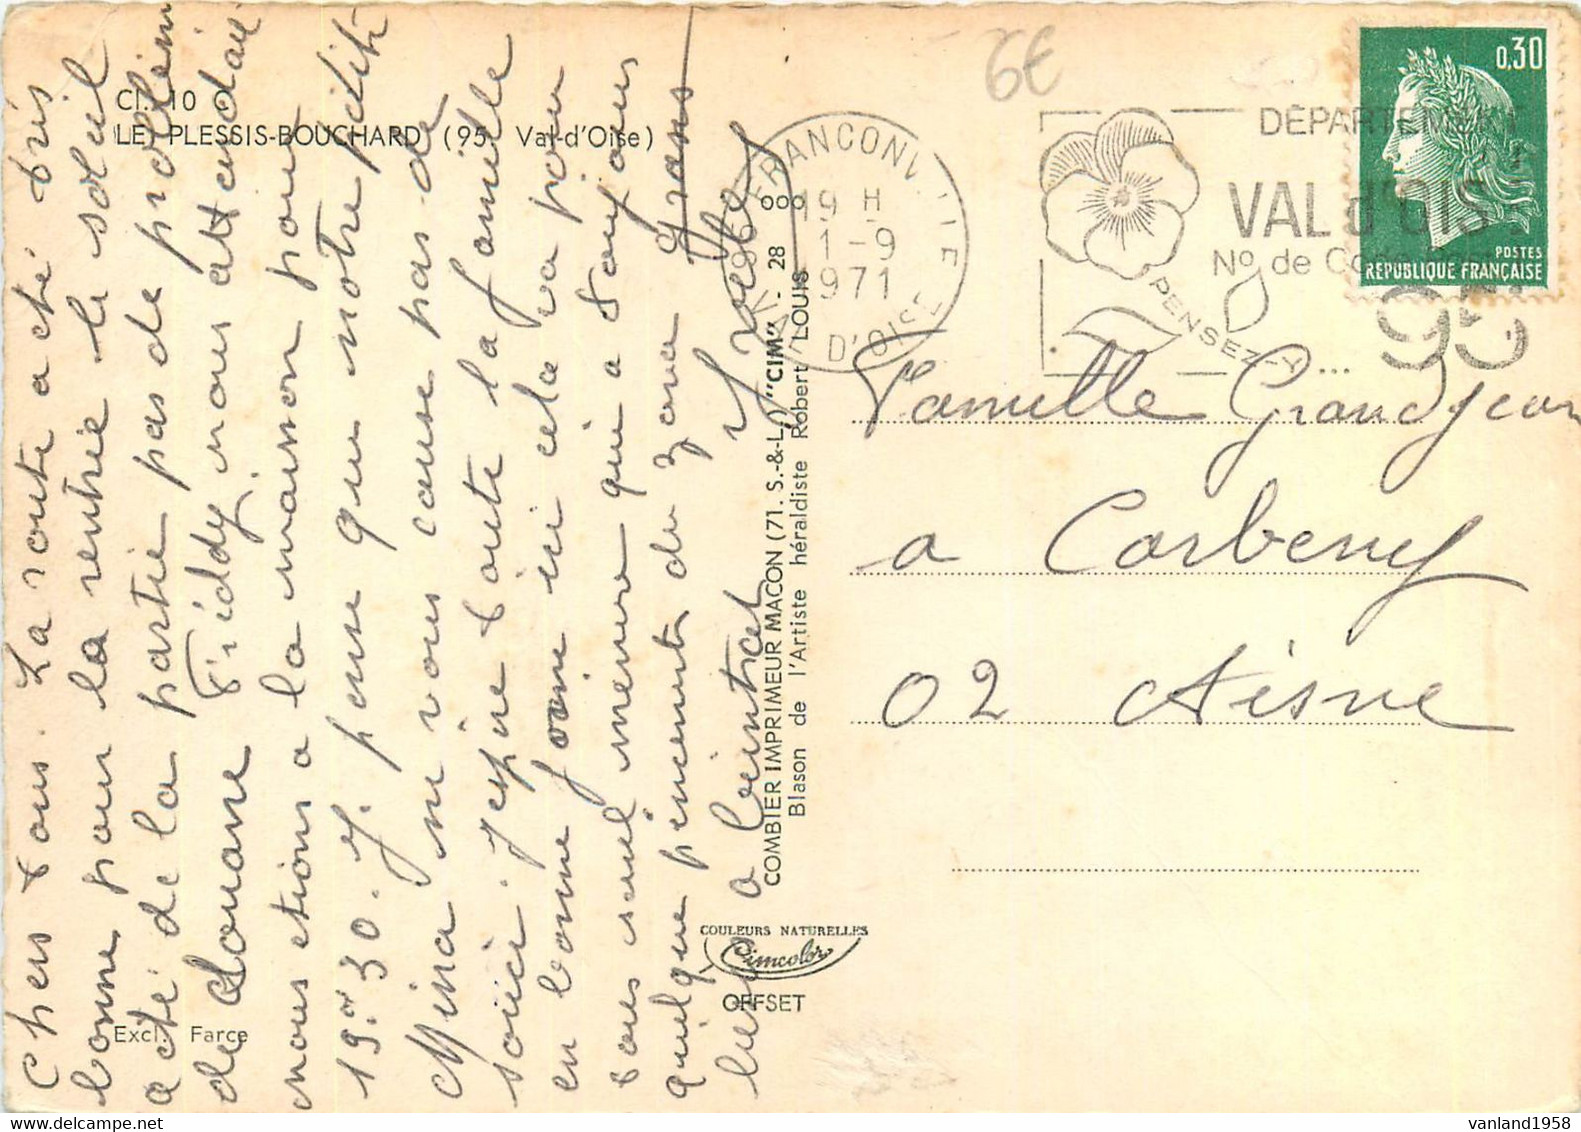 Chers tous. La route a été très
bonne pour la rentrée le soleil
a été de la partie pas de problème
de douane Freddy nous attendait
nous etions a la maison pour
19h 30. J. pense que notre petite
Mina ne vous cause pas de
souci. J'espère toute la famille
en bonne forme ici cela va pour
tous seul mémére qui a toujours
quelque pincements du zona grans
bises a bientot
Yvette
Cl. 10
LE PLESSIS-BOUCHARD (95. Val-d'Oise)
Excl. Farce
COMBIER IMPRIMEUR MACON (71. S.-&-L.) "CIM" . 28
Blason de l'Artiste héraldiste Robert LOUIS
COULEURS NATURELLES
Cimcolor
OFFSET
6€
95 FRANCONVILLE
19 H
1-9
1971
VAL D'OISE
DÉPARTEMENT
VAL d'OISE
N° de Code
95
PENSEZ-Y...
0,30
POSTES
REPUBLIQUE FRANÇAISE
Famille Grandjean
a Corbeny
02 Aisne
vanland1958